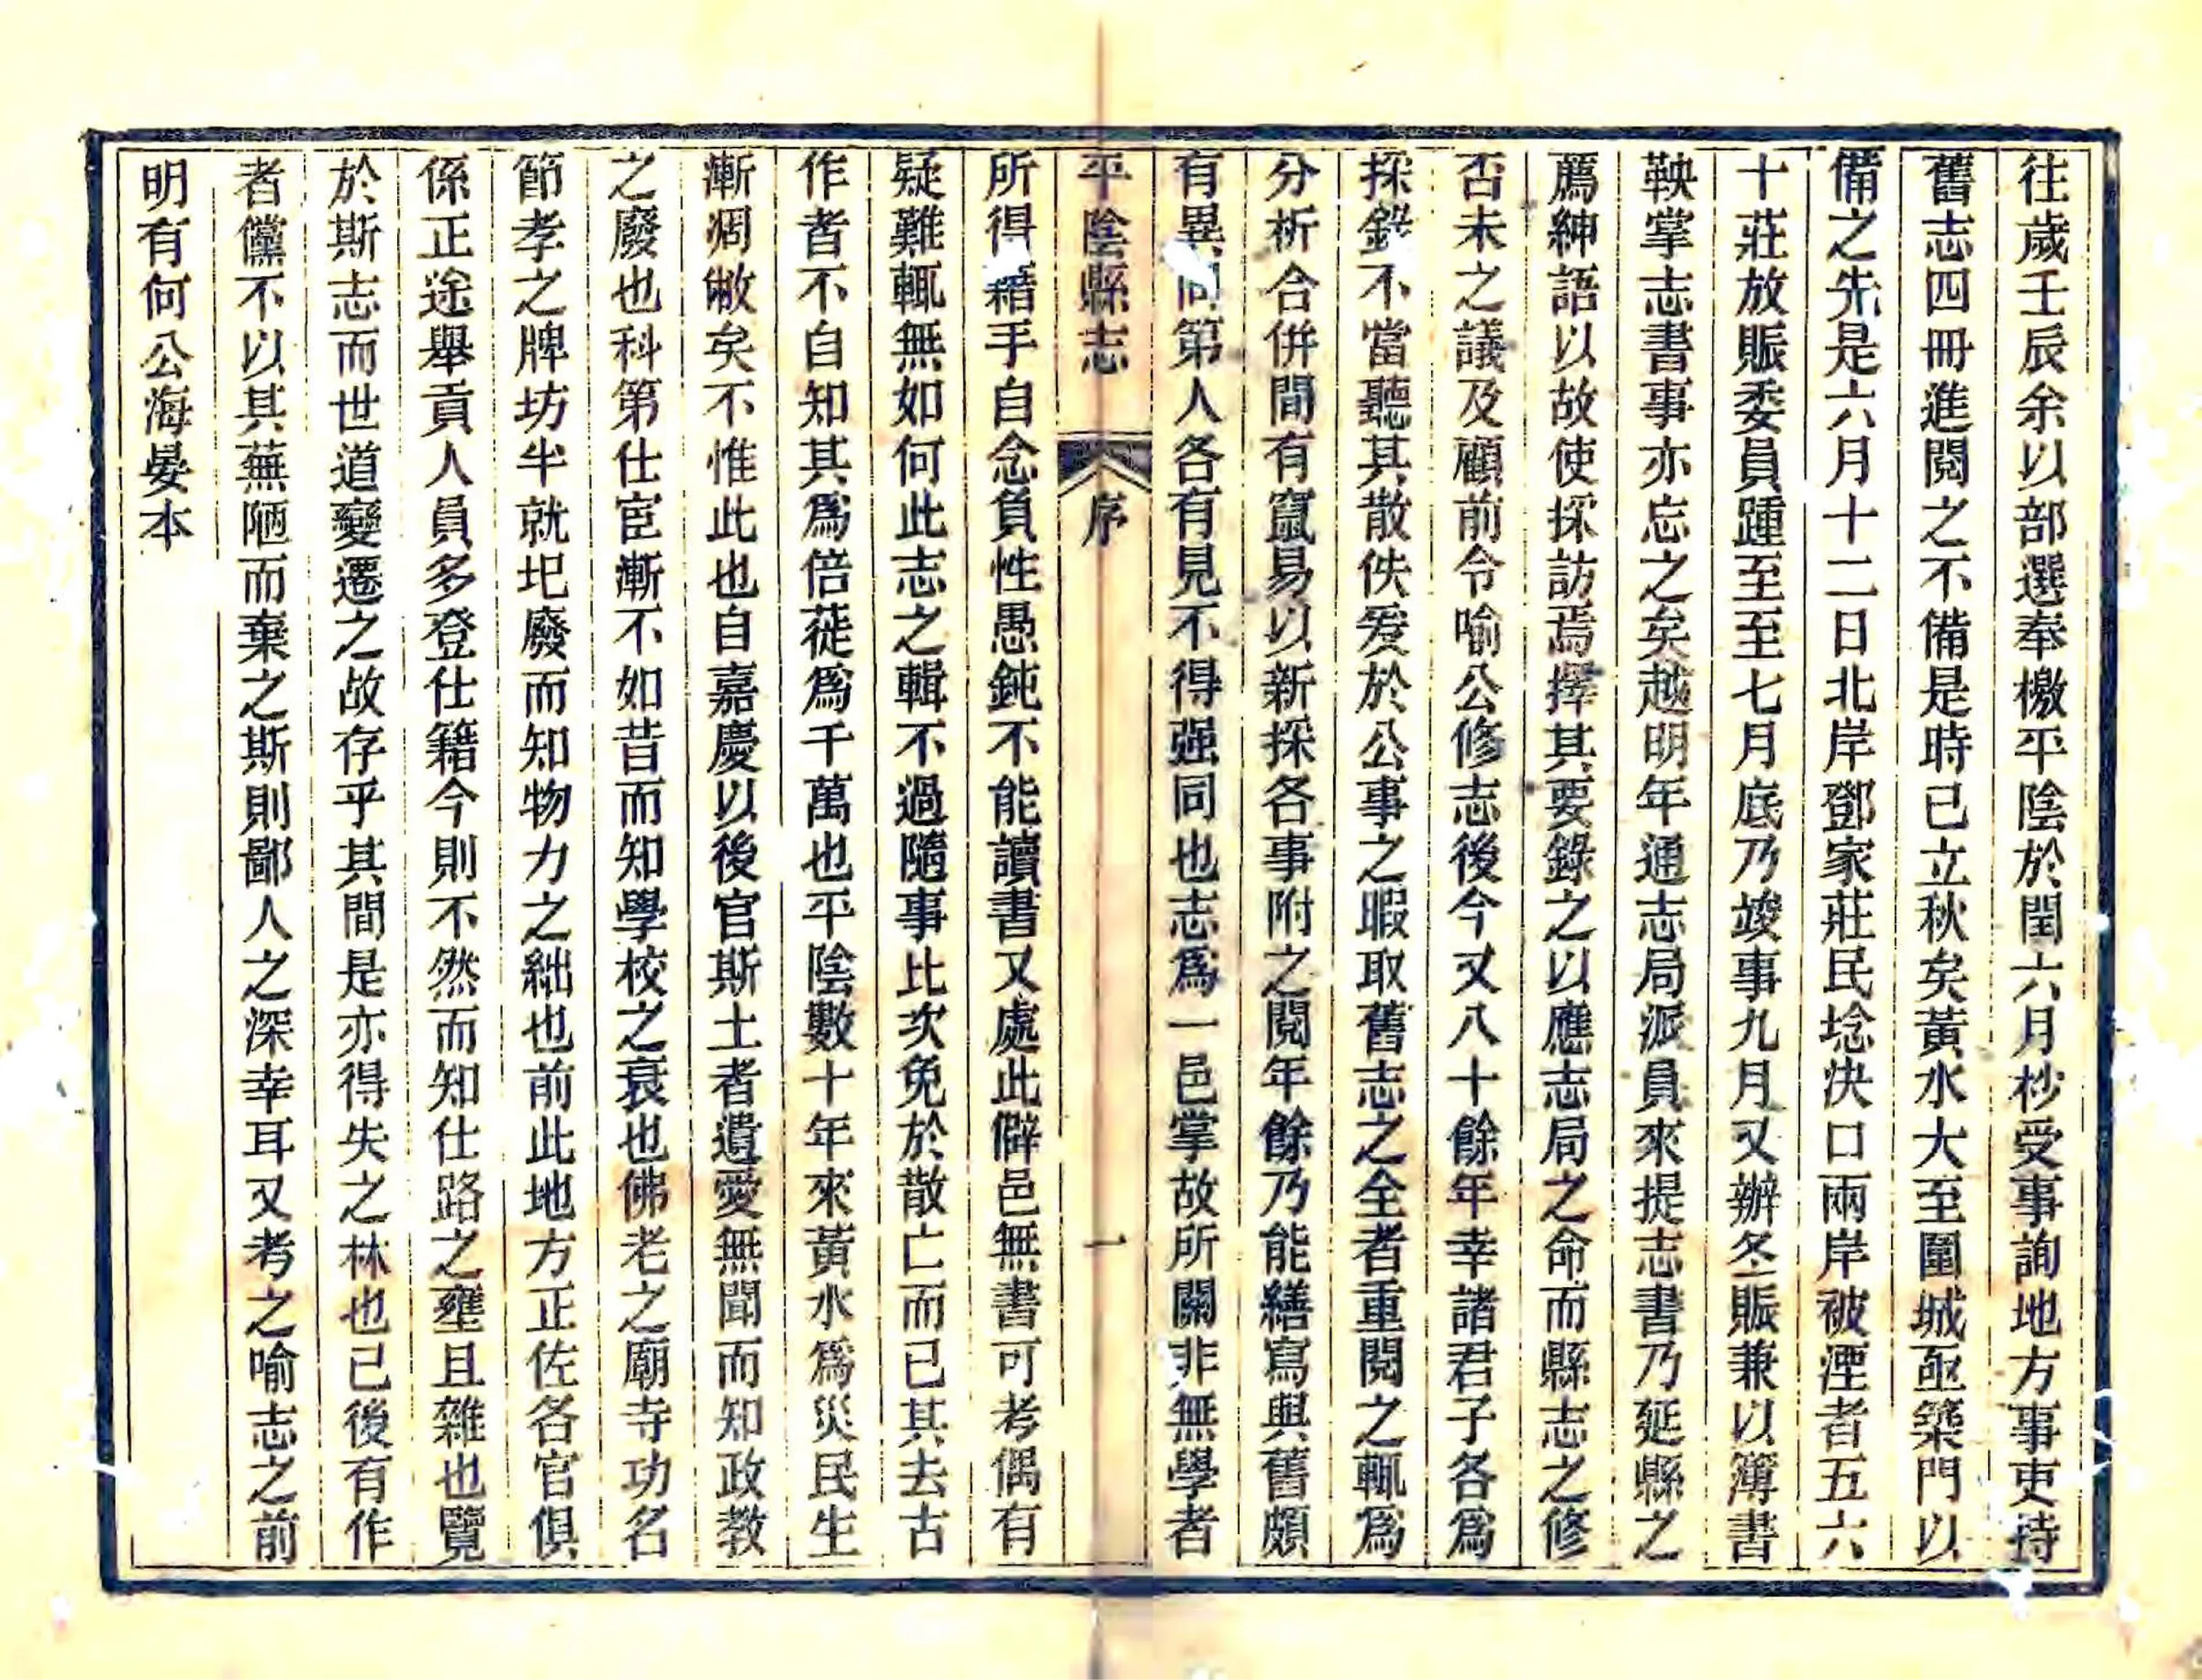 往歲壬辰余以部選奉檄平陰於閏六月杪受事詢地方事吏持
舊志四冊進閱之不備是時已立秋矣黃水大至圍城亟築門以
備之先是六月十二日北岸鄧家莊民埝決口兩岸被湮者五六
十莊放賑委員踵至至七月底乃竣事九月又辦冬賑兼以簿書
鞅掌志書事亦忘之矣越明年通志局派員來提志書乃延縣之
薦紳語以故使採訪焉擇其要錄之以應志局之命而縣志之修
否未之議及顧前令喻公修志後今又八十餘年幸諸君子各為
採錄不當聽其散佚爰於公事之暇取舊志之全者重閱之輒為
分析合併間有竄易以新採各事附之閱年餘乃能繕寫與舊頗
有異同第人各有見不得强同也志為一邑掌故所關非無學者
平陰縣志 序 一
所得藉手自念負性愚鈍不能讀書又處此僻邑無書可考偶有
疑難輒無如何此志之輯不過隨事比次免於散亡而已其去古
作者不自知其為倍蓰為千萬也平陰數十年來黃水為災民生
漸凋敝矣不惟此也自嘉慶以後官斯土者遺愛無聞而知政教
之廢也科第仕宦漸不如昔而知學校之衰也佛老之廟寺功名
節孝之牌坊半就圯廢而知物力之絀也前此地方正佐各官俱
係正途舉貢人員多登仕籍今則不然而知仕路之壅且雜也覽
於斯志而世道變遷之故存乎其間是亦得失之林也已後有作
者儻不以其蕪陋而棄之斯則鄙人之深幸耳又考之喻志之前
明有何公海晏本